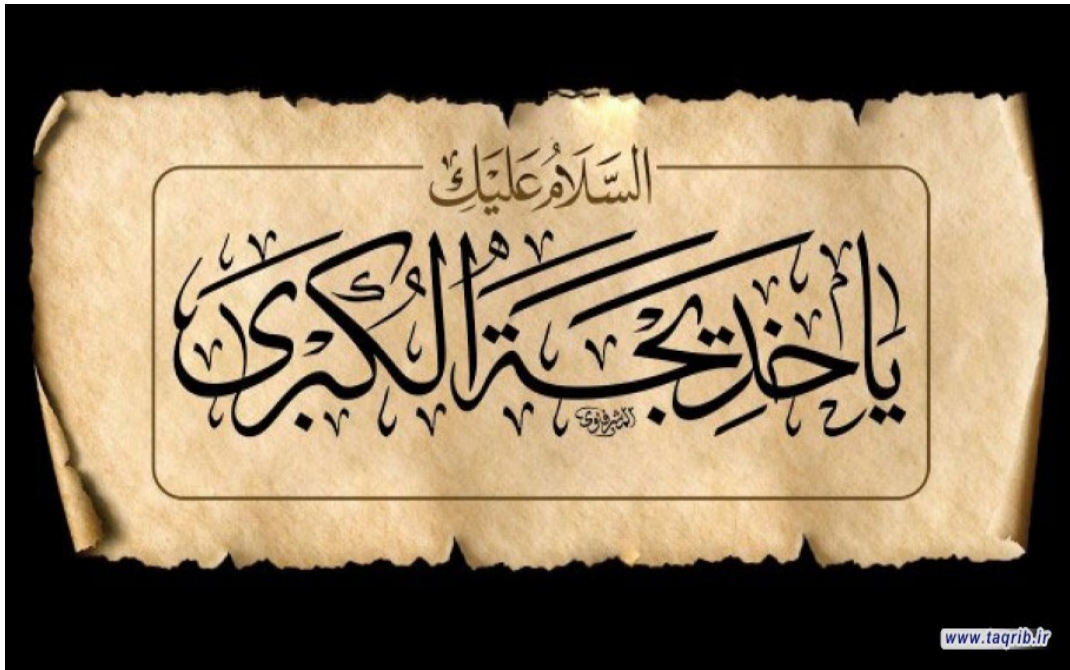 السَّلَامُ عَلَيْكِ
يَا خَدِيجَةُ الْكُبْرَى
الشرقاوي
www.taqrib.ir